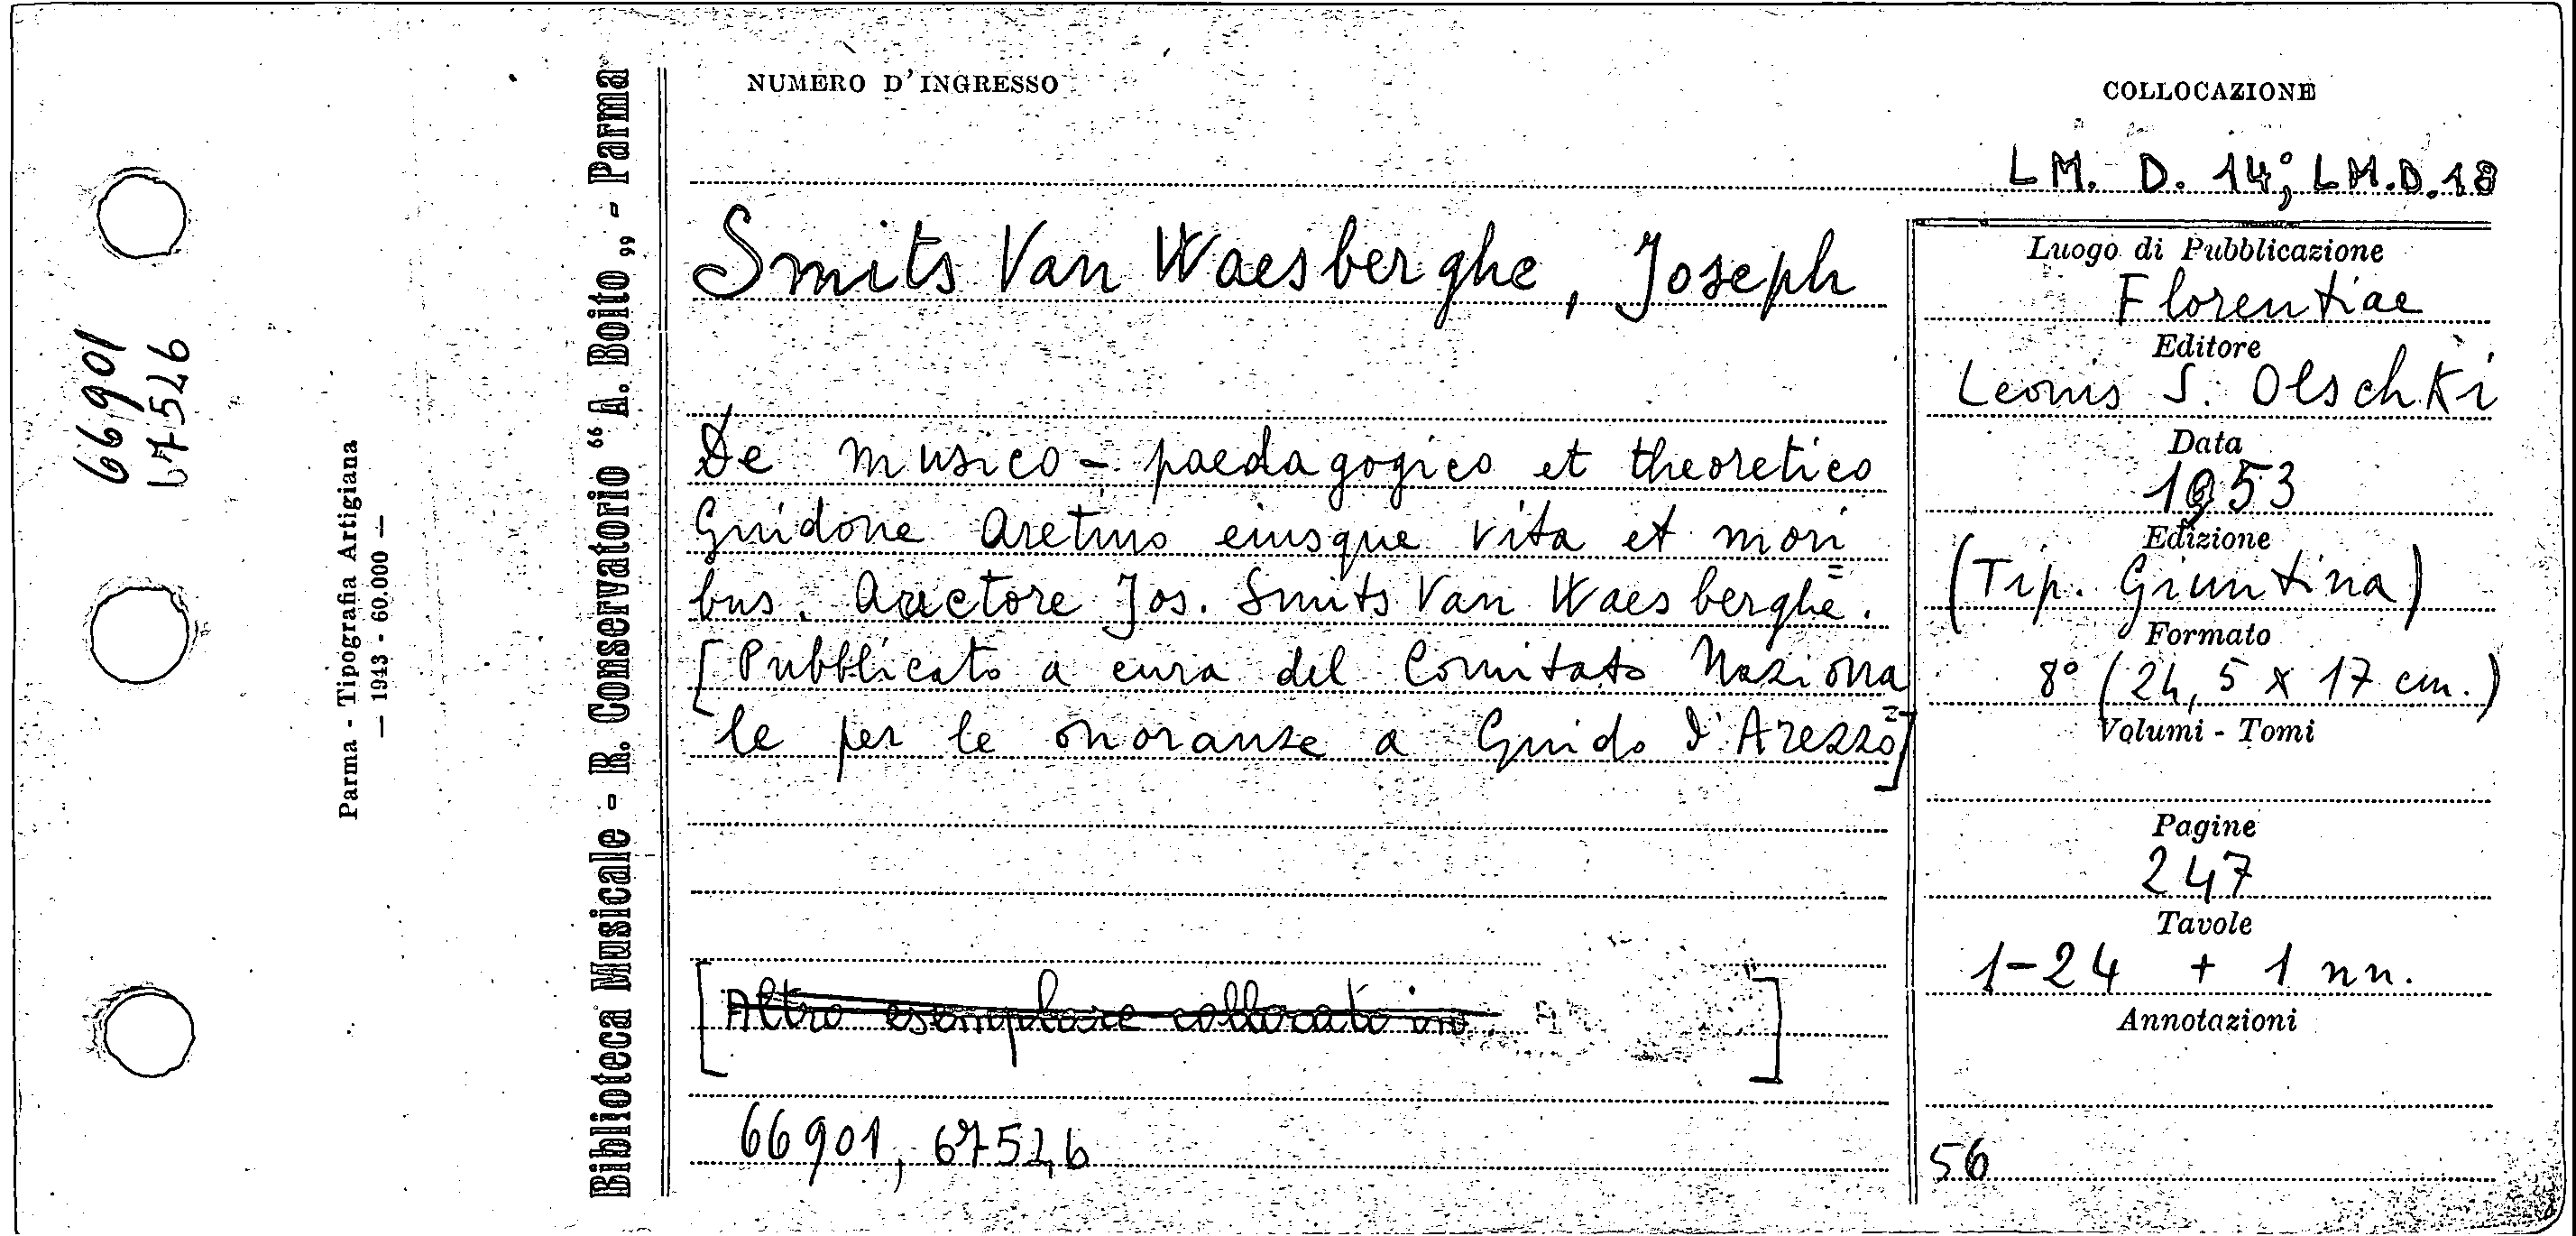 NUMERO D'INGRESSO
COLLOCAZIONE
LM. D. 14; LM.D.18
Smits Van Waesberghe, Joseph
De musico-paedagogico et theoretico
Guidone Aretino eiusque vita et mori
bus. Auctore Jos. Smits Van Waesberghe.
[Pubblicato a cura del Comitato Naziona
le per le onoranze a Guido d'Arezzo]
[Altro esemplare collocato in ]
66901, 67526
Luogo di Pubblicazione
Florentiae
Editore
Leonis S. Olschki
Data
1953
Edizione
(Tip. Giuntina)
Formato
8° (24,5 x 17 cm.)
Volumi - Tomi
Pagine
247
Tavole
1-24 + 1 nn.
Annotazioni
56
Biblioteca Musicale - R. Conservatorio "A. Boito„ - Parma
Parma - Tipografia Artigiana
— 1943 - 60.000 —
66901
67526